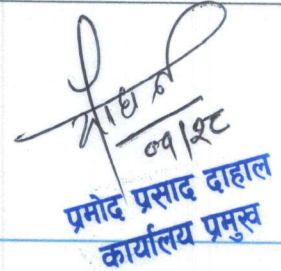 ०१/२८
प्रमोद प्रसाद दाहाल
कार्यालय प्रमुख